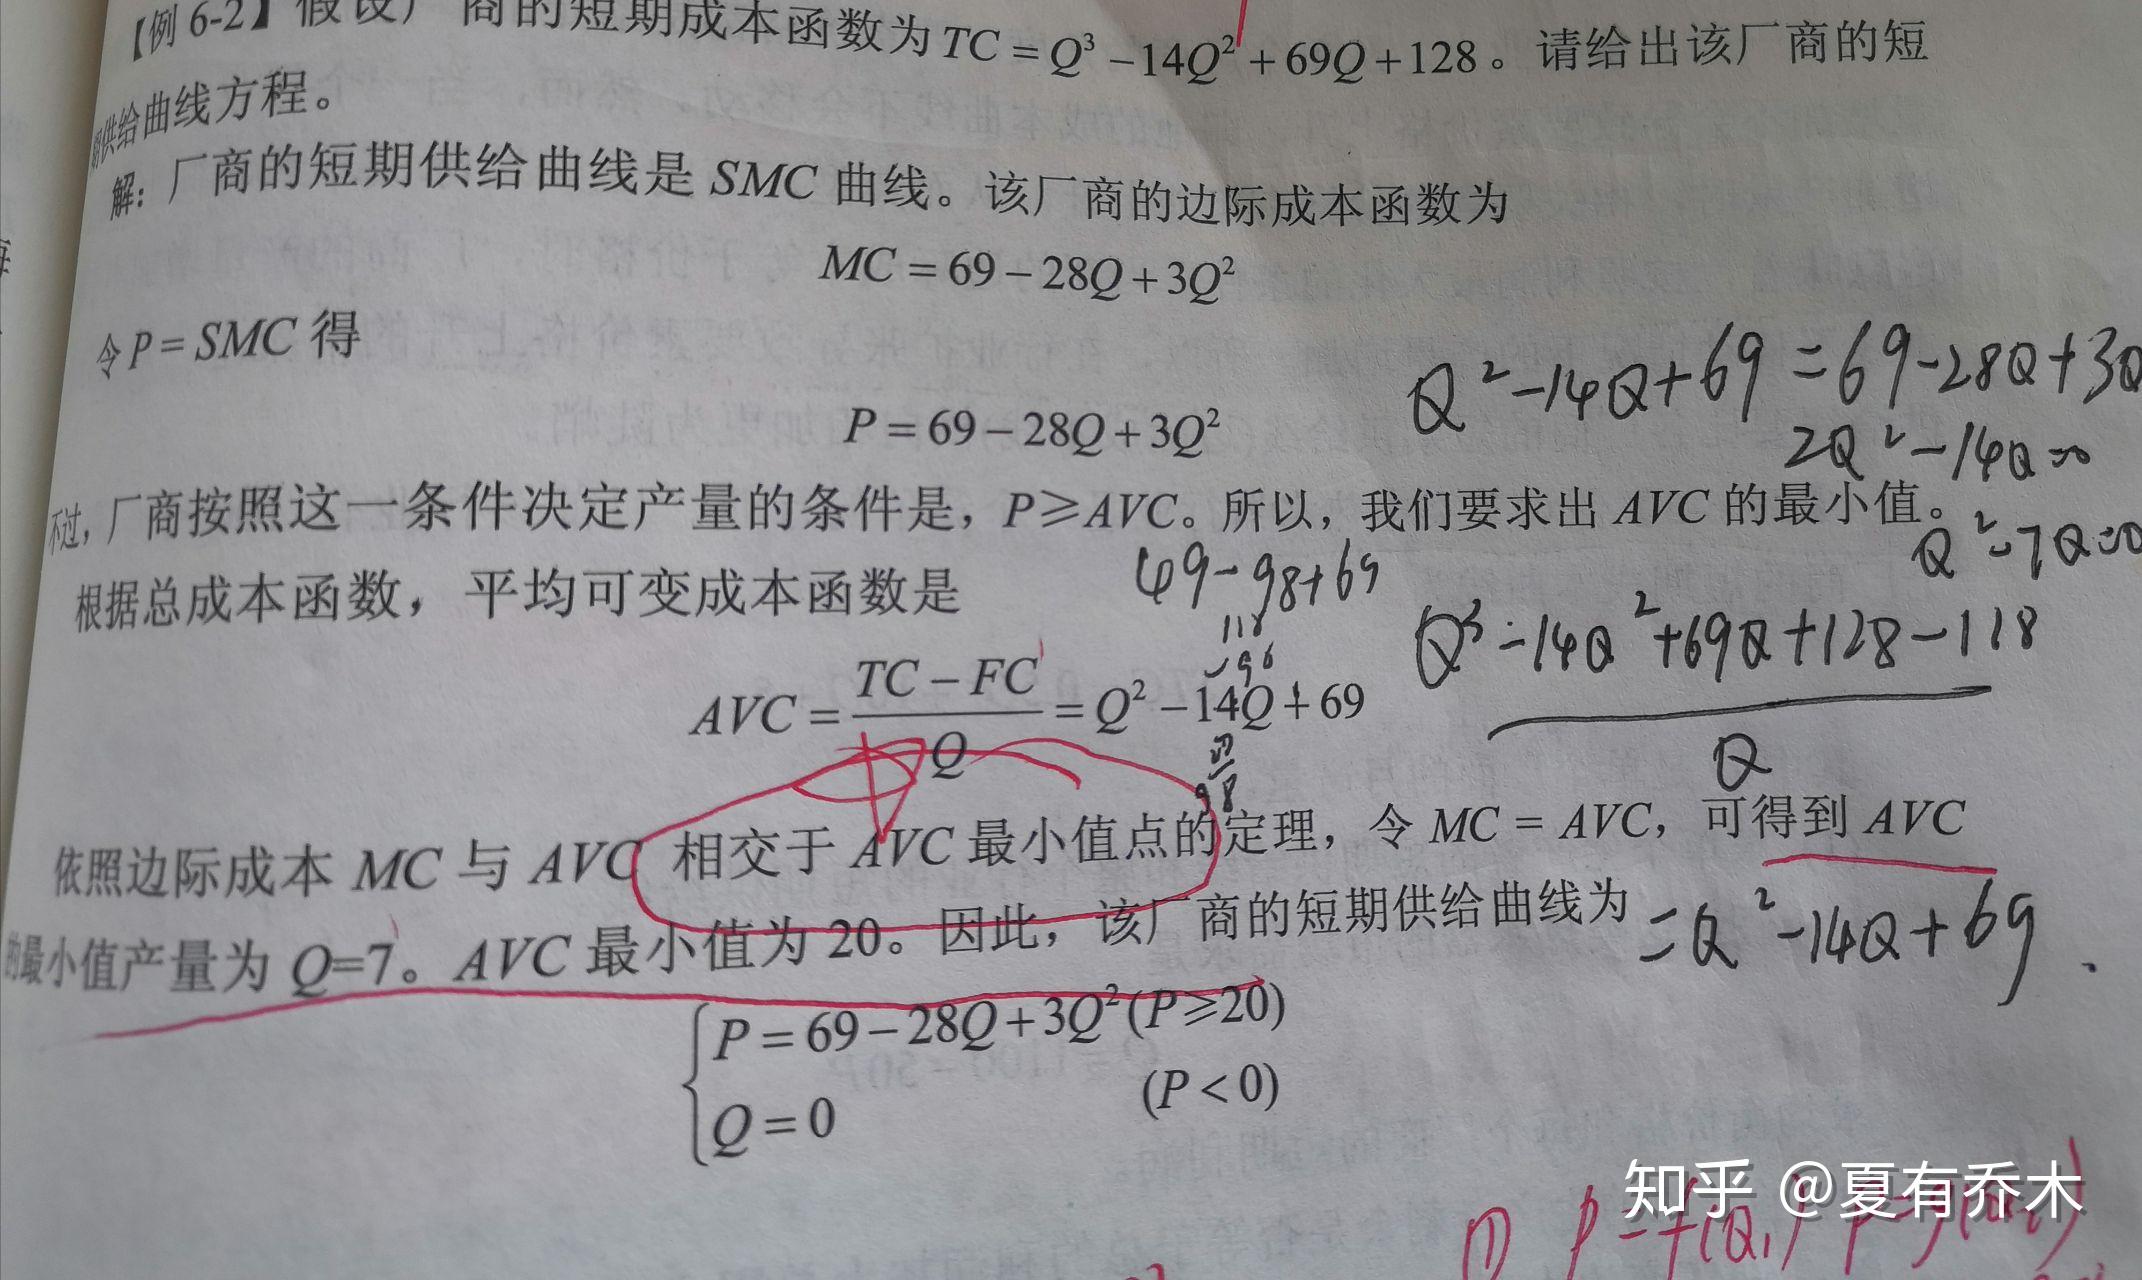 【例 6-2】假设厂商的短期成本函数为 TC = Q³ − 14Q² + 69Q + 128。请给出该厂商的短
期供给曲线方程。
解：厂商的短期供给曲线是 SMC 曲线。该厂商的边际成本函数为
MC = 69 − 28Q + 3Q²
令 P = SMC 得
P = 69 − 28Q + 3Q²
Q² − 14Q + 69 = 69 − 28Q + 3Q
2Q² − 14Q = 0
不过，厂商按照这一条件决定产量的条件是，P ⩾ AVC。所以，我们要求出 AVC 的最小值。
Q² − 7Q = 0
根据总成本函数，平均可变成本函数是
49 − 98 + 69
118
− 98
Q³ − 14Q² + 69Q + 128 − 128
Q
AVC = (TC − FC)/Q = Q² − 14Q + 69
98
依照边际成本 MC 与 AVC 相交于 AVC 最小值点的定理，令 MC = AVC，可得到 AVC
的最小值产量为 Q=7。AVC 最小值为 20。因此，该厂商的短期供给曲线为
= Q² − 14Q + 69
P = 69 − 28Q + 3Q² (P ⩾ 20)
Q = 0 (P < 0)
知乎 @夏有乔木
P = f(Q₁)